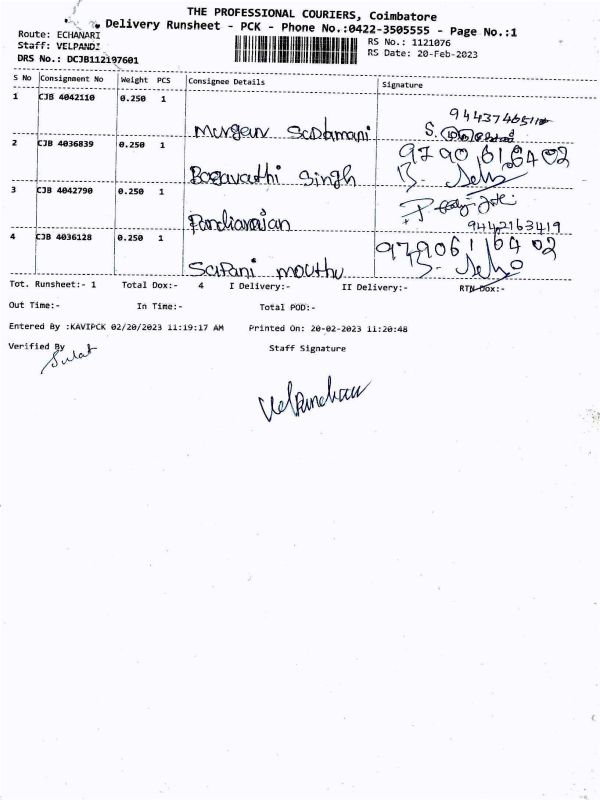 THE PROFESSIONAL COURIERS, Coimbatore
Delivery Runsheet - PCK - Phone No.:0422-3505555 - Page No.:1
Route: ECHANARI
Staff: VELPANDI
DRS No.: DCJB112197601
RS No.: 1121076
RS Date: 20-Feb-2023
S No Consignment No Weight PCS Consignee Details Signature
1 CJB 4042110 0.250 1 Murgan
S.
2 CJB 4036839 0.250 1 Bagavathi Singh 9790616402
3 CJB 4042790 0.250 1 Pandiarajan
9442163419
4 CJB 4036128 0.250 1
Tot. Runsheet:- 1 Total Dox:- 4 I Delivery:- II Delivery:- RTN Dox:-
Out Time:- In Time:- Total POD:-
Entered By :KAVIPCK 02/20/2023 11:19:17 AM Printed On: 20-02-2023 11:20:48
Verified By Staff Signature